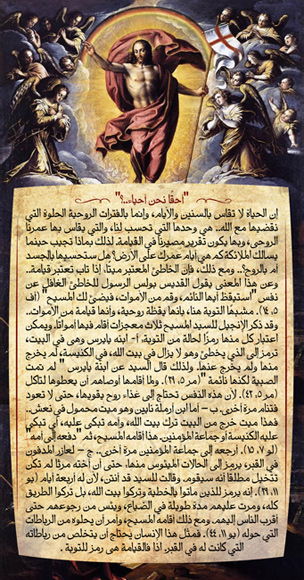 "أحقًا نحن أحياء..؟"
إن الحياة لا تقاس بالسنين والأيام، وإنما بالفترات الروحية الحلوة التي
نقضيها مع الله.. هي وحدها التي تحسب لنا، والتي يقاس بها عمرنا
الروحي، وبها يكون تقرير مصيرنا في القيامة. لذلك بماذا تجيب حينما
يسألك الملائكة كم هي أيام عمرك على الأرض؟ هل ستحسبها بالجسد
أم بالروح؟.. ومع ذلك، فإن الخاطئ المعتبر ميتًا، إذا تاب تعتبر قيامة..
وعن هذا المعنى يقول القديس بولس الرسول للخاطئ الغافل عن
نفسه "استيقظ أيها النائم، وقم من الأموات، فيضئ لك المسيح" (أف
٥: ١٤). مشبهًا التوبة هنا، بإنها يقظة روحية، وإنها قيامة من الأموات..
وقد ذكر الإنجيل للسيد المسيح ثلاث معجزات أقام فيها أمواتًا، ويمكن
اعتبار كل منها رمزًا لحالة من التوبة. أ- ابنه يايرس وهى في البيت،
ترمز إلى الذي يخطئ وهو لا يزال في بيت الله، في الكنيسة، لم يخرج
منها ولم يخرج عنها. ولذلك قال السيد عن ابنة يايرس " لم تمت
الصبية لكنها نائمة" (مر ٥: ٣٩). ولما إقامها أوصاهم أن يعطوها لتأكل
(مر ٥: ٤٢). لأن هذه النفس تحتاج إلى غذاء، روح يقويها، حتى لا تعود
فتنام مرة أخرى. ب - أما ابن أرملة نايين وهو ميت محمول في نعش.
فهذا ميت خرج من البيت ترك بيت الله، وأمه تبكى عليه، أي تبكى
عليه الكنيسة أو جماعة المؤمنين. هذا أقامه المسيح، ثم "دفعه إلى أمه"
(لو ٧: ١٥). أرجعه إلى جماعة المؤمنين مرة اخرى. ج - لعازر المدفون
في القبر، يرمز إلى الحالات الميئوس منها، حتى أن أخته مرثا لم تكن
تتخيل مطلقا أنه سيقوم. وقالت للسيد قد انتن، لأن له اربعة أيام. (يو
١١: ٣٩). إنه يرمز للذين ماتوا بالخطية وتركوا بيت الله، بل تركوا الطريق
كله، ومرت عليهم مدة طويلة في الضياع، ويئس من رجوعهم حتى
أقرب الناس إليهم. ومع ذلك أقامه المسيح، وأمر أن يحلوه من الرباطات
التي حوله (يو ١١: ٤٤). فمثل هذا الإنسان يحتاج أن يتخلص من رباطاته
التي كانت له في القبر. اذا فالقيامة هى رمز للتوبة .